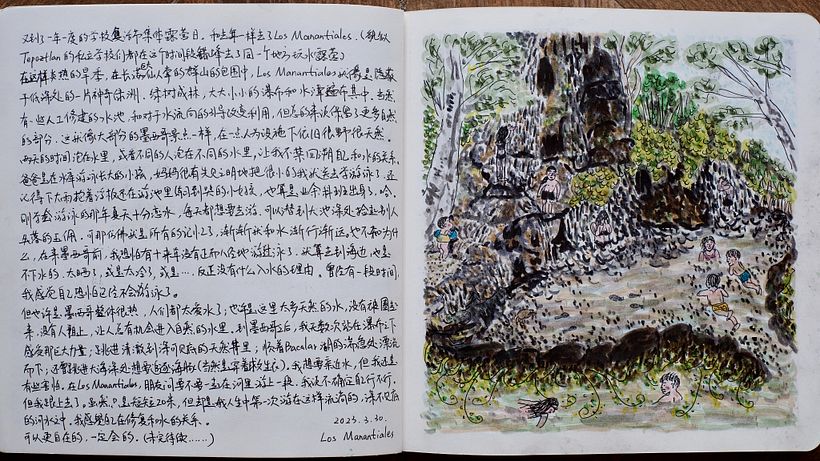 又到了一年一度的学校集体露营日。和去年一样去了Los Manantiales。(貌似
Tepoztlan的私立学校们都在这个时间段去了同一个地方玩水露营)
在这样长热的旱季,在长满仙人掌的群山的包围中,Los Manantiales就像是隐藏
于低深处的一片神奇绿洲。绿树成林,大大小小的瀑布和水潭在其中。虽然
有一些人工修建的水池,和对于水流向的引导改变利用,但总的来说保留了更多自然
的部分。这就像大部分的墨西哥景点一样,在一些人为设施下依旧很野很天然。
两天的时间泡在水里,或看不同的人泡在不同的水里,让我不禁回溯自己和水的关系。
爸爸是在海岸边游泳长大的小孩,妈妈很有先见之明地把很小的我就送去学游泳了。还
记得下大雨抱着浮板还在游泳池里练习的小女孩,也算是业余班出身了。哈。
刚学会游泳的那年夏天十分恋水,每天都想要去游。可以替到大池深处捡起别人
失落的玉佩。可那仿佛就是所有的记忆了,渐渐就和水渐行渐远,也不知为什
么,在来墨西哥前,我想怕有十来年没有正而八经地游过泳了。就算去到海边,也是
不下水的。太晒了,或是太冷了,或是…,反正没有什么入水的理由。曾经有一段时间,
我感觉自己恐怕已经不会游泳了。
但也许是墨西哥整体很热,人们都太爱水了;也许是这里太多天然的水,没有被圈起
来,没有人阻止,让人总有机会进入自然的水里。到墨西哥后,我无数次站在瀑布之下
感受那巨大力量;跳进清澈到深可见底的天然井里;顺着Bacalar湖的湍急处漂流
而下;还曾跳进大海深处想要追逐海豚(当然是穿着救生衣)。我想要亲近水,但我还是
有些害怕。在Los Manantiales,朋友问要不要一起在河里游上一段。我说不确定自己行不行。
但我跟上去了。虽然只是短短20米,但却是我人生中第一次游在这样流淌的,深不见底
的河水中。我感觉自己在修复和水的关系。
可以更自在的,一定会的。(未完待续……)
2023.3.30.
Los Manantiales